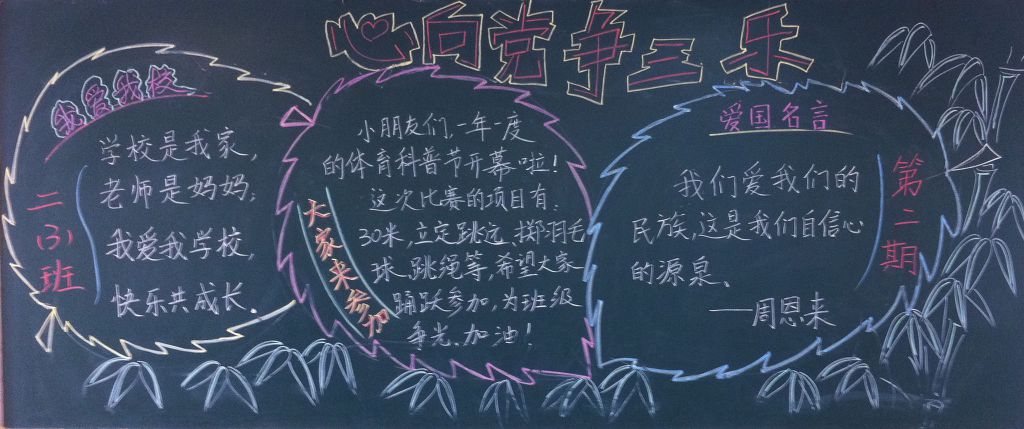 心向党争三乐
我爱我校
学校是我家,
老师是妈妈;
我爱我学校,
快乐共成长.
二(3)班
小朋友们,一年一度
的体育科普节开幕啦!
这次比赛的项目有:
30米,立定跳远、掷羽毛
球、跳绳等,希望大家
踊跃参加,为班级
争光、加油!
大家来参加
爱国名言
我们爱我们的
民族,这是我们自信心
的源泉、
——周恩来
第二期